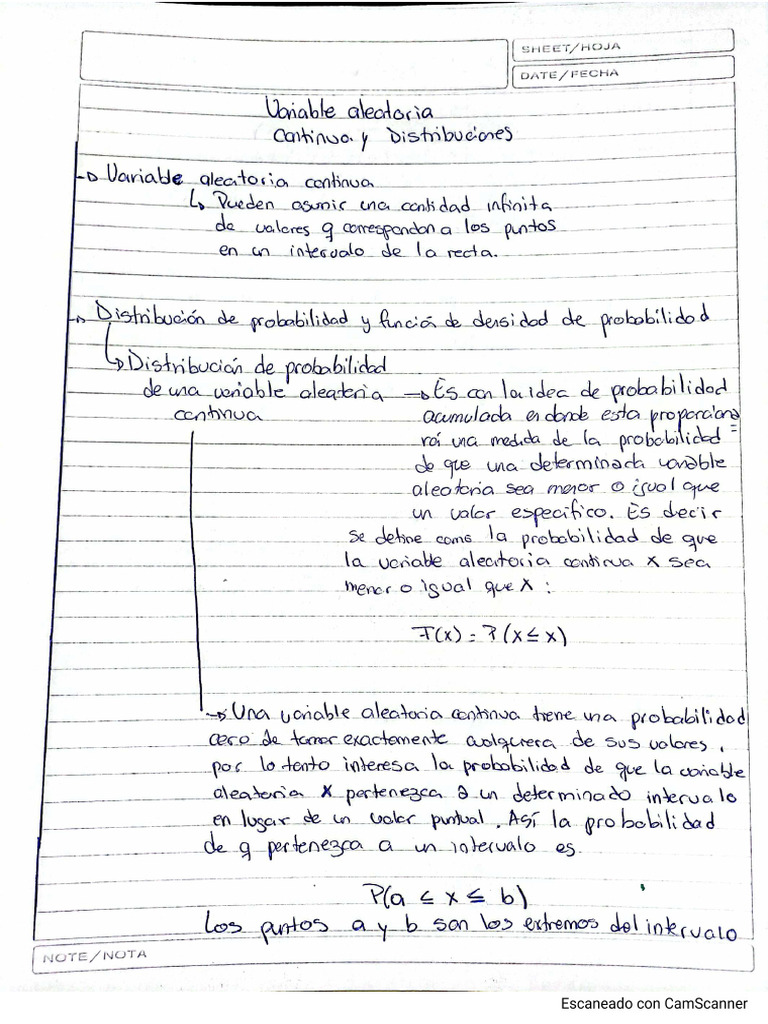 SHEET/HOJA
DATE/FECHA
Variable aleatoria
Continua y Distribuciones
→ Variable aleatoria continua
↳ Pueden asumir una cantidad infinita
de valores q correspondan a los puntos
en un intervalo de la recta.
→ Distribución de probabilidad y función de densidad de probabilidad
↳ Distribución de probabilidad
de una variable aleatoria → Es con la idea de probabilidad
continua acumulada en donde esta proporciona
rá una medida de la probabilidad
de que una determinada variable
aleatoria sea menor o igual que
un valor específico. Es decir
se define como la probabilidad de que
la variable aleatoria continua x sea
menor o igual que x :
F(x) = P(x ≤ x)
→ Una variable aleatoria continua tiene una probabilidad
cero de tomar exactamente cualquiera de sus valores,
por lo tanto interesa la probabilidad de que la variable
aleatoria x pertenezca a un determinado intervalo
en lugar de un valor puntual. Así la probabilidad
de q pertenezca a un intervalo es.
P(a ≤ x ≤ b)
Los puntos a y b son los extremos del intervalo
NOTE/NOTA
Escaneado con CamScanner